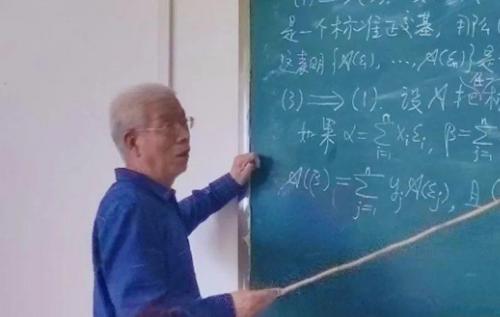 是一个标准正交基,那么
这表明{𝒜(ε₁), …, 𝒜(εₙ)}是
(3) ⟹ (1). 设 𝒜 把标
如果 α = ∑ᵢ₌₁ⁿ xᵢεᵢ, β = ∑
𝒜(β) = ∑ⱼ₌₁ⁿ yⱼ𝒜(εⱼ), 且 (